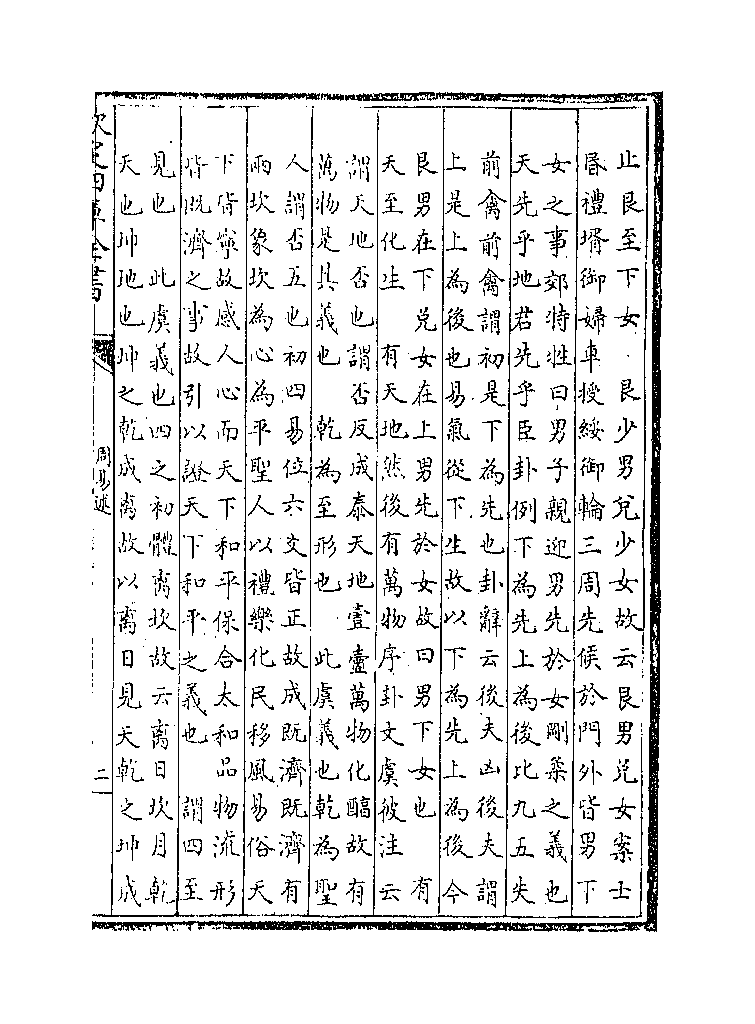 止艮至下女　艮少男兌少女故云艮男兌女案士
昏禮壻御婦車授綏御輪三周先俟於門外皆男下
女之事郊特牲曰男子親迎男先於女剛柔之義也
天先乎地君先乎臣卦例下為先上為後比九五失
前禽前禽謂初是下為先也卦辭云後夫凶後夫謂
上是上為後也易氣從下生故以下為先上為後今
艮男在下兌女在上男先於女故曰男下女也　有
天至化生　有天地然後有萬物序卦文虞彼注云
謂天地否也謂否反成泰天地壹壼萬物化醕故有
萬物是其義也　乾為至形也　此虞義也乾為聖
人謂否五也初四易位六爻皆正故成既濟既濟有
兩坎象坎為心為平聖人以禮樂化民移風易俗天
下皆寧故感人心而天下和平保合太和品物流形
皆既濟之事故引以證天下和平之義也　謂四至
見也　此虞義也四之初體离坎故云离日坎月乾
天也坤地也坤之乾成离故以离日見天乾之坤成
欽定四庫全書
周易述
二